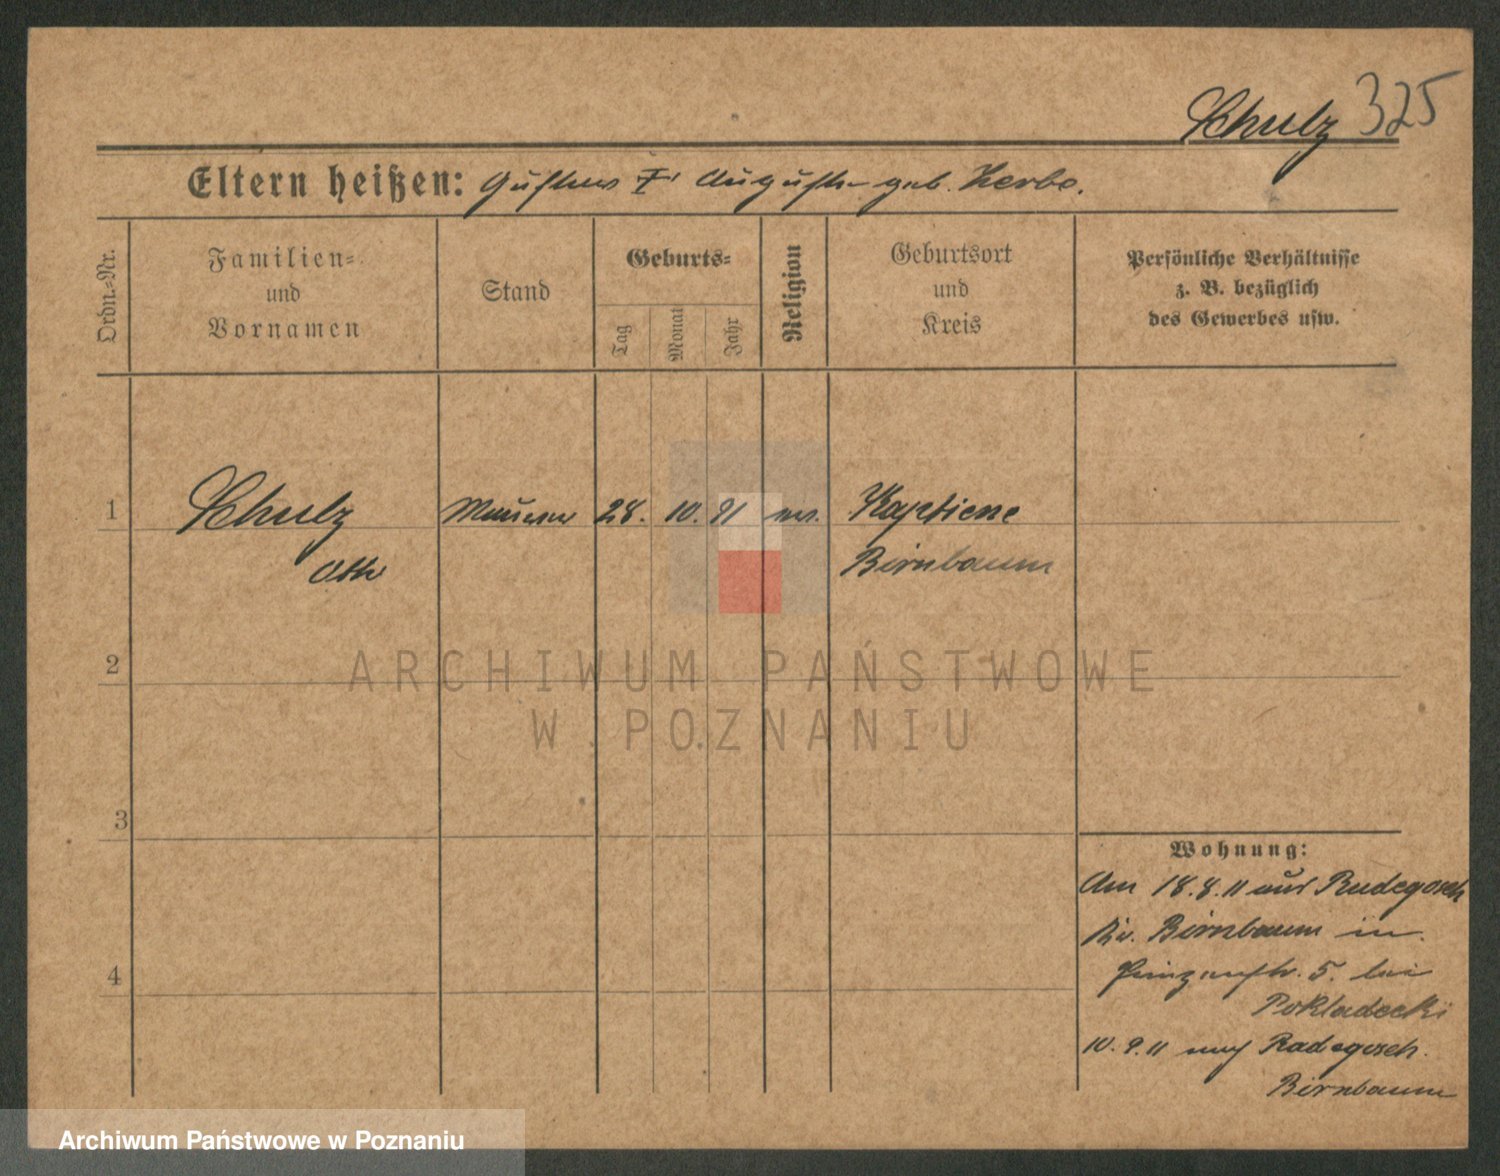 Schulz 325
Eltern heißen: Gustav u. Auguste geb. Herbe.
Ordn.-Nr.
Familien-
und
Vornamen
Stand
Geburts-
Tag
Monat
Jahr
Religion
Geburtsort
und
Kreis
Persönliche Verhältnisse
z. B. bezüglich
des Gewerbes usw.
1
Schulz
Otto
Maurer
28.
10.
91
ev.
Kaptiene
Birnbaum
2
3
4
ARCHIWUM PAŃSTWOWE
W POZNANIU
Wohnung:
Am 18.8.11 aus Radegosch
Kr. Birnbaum in
Prinzenstr. 5. bei
Pokladecki
10.9.11 nach Radegosch.
Birnbaum
Archiwum Państwowe w Poznaniu